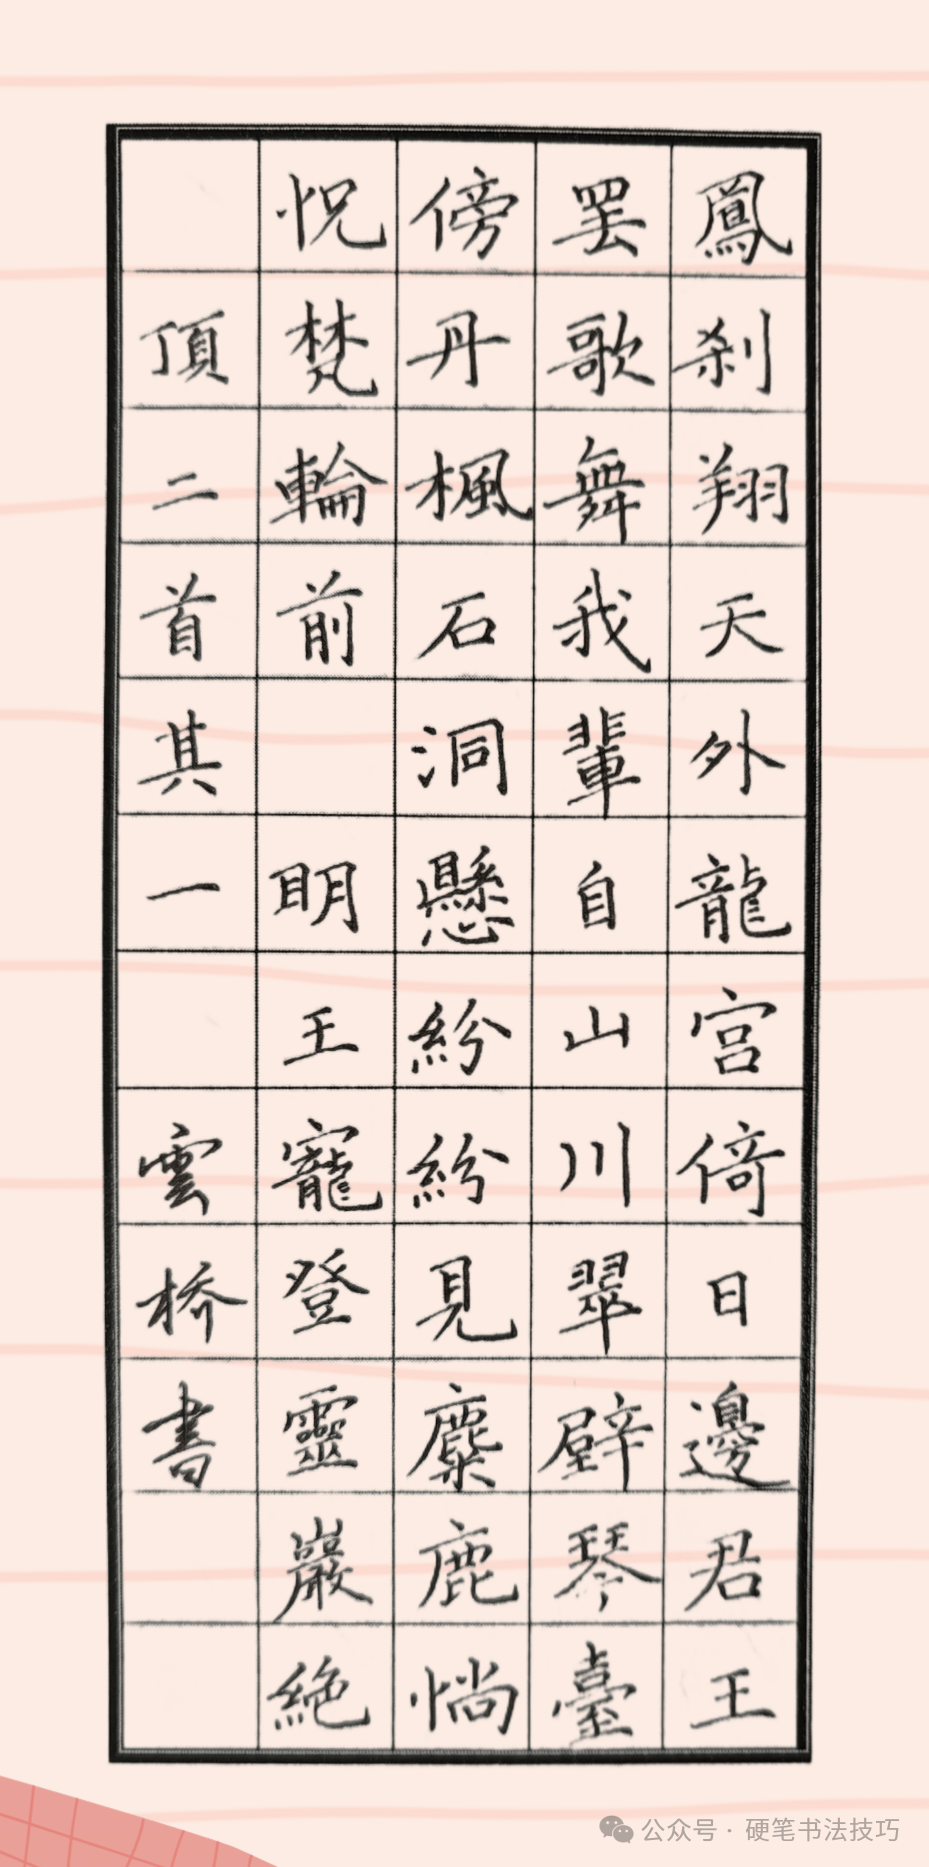 鳳刹翔天外龍宫倚日邊君王
罢歌舞我輩自山川翠壁琴臺
傍丹楓石洞懸紛紛見麋鹿惝
怳梵輪前 明王寵登靈巖絶
頂二首其一 雲桥書
公众号 · 硬笔书法技巧